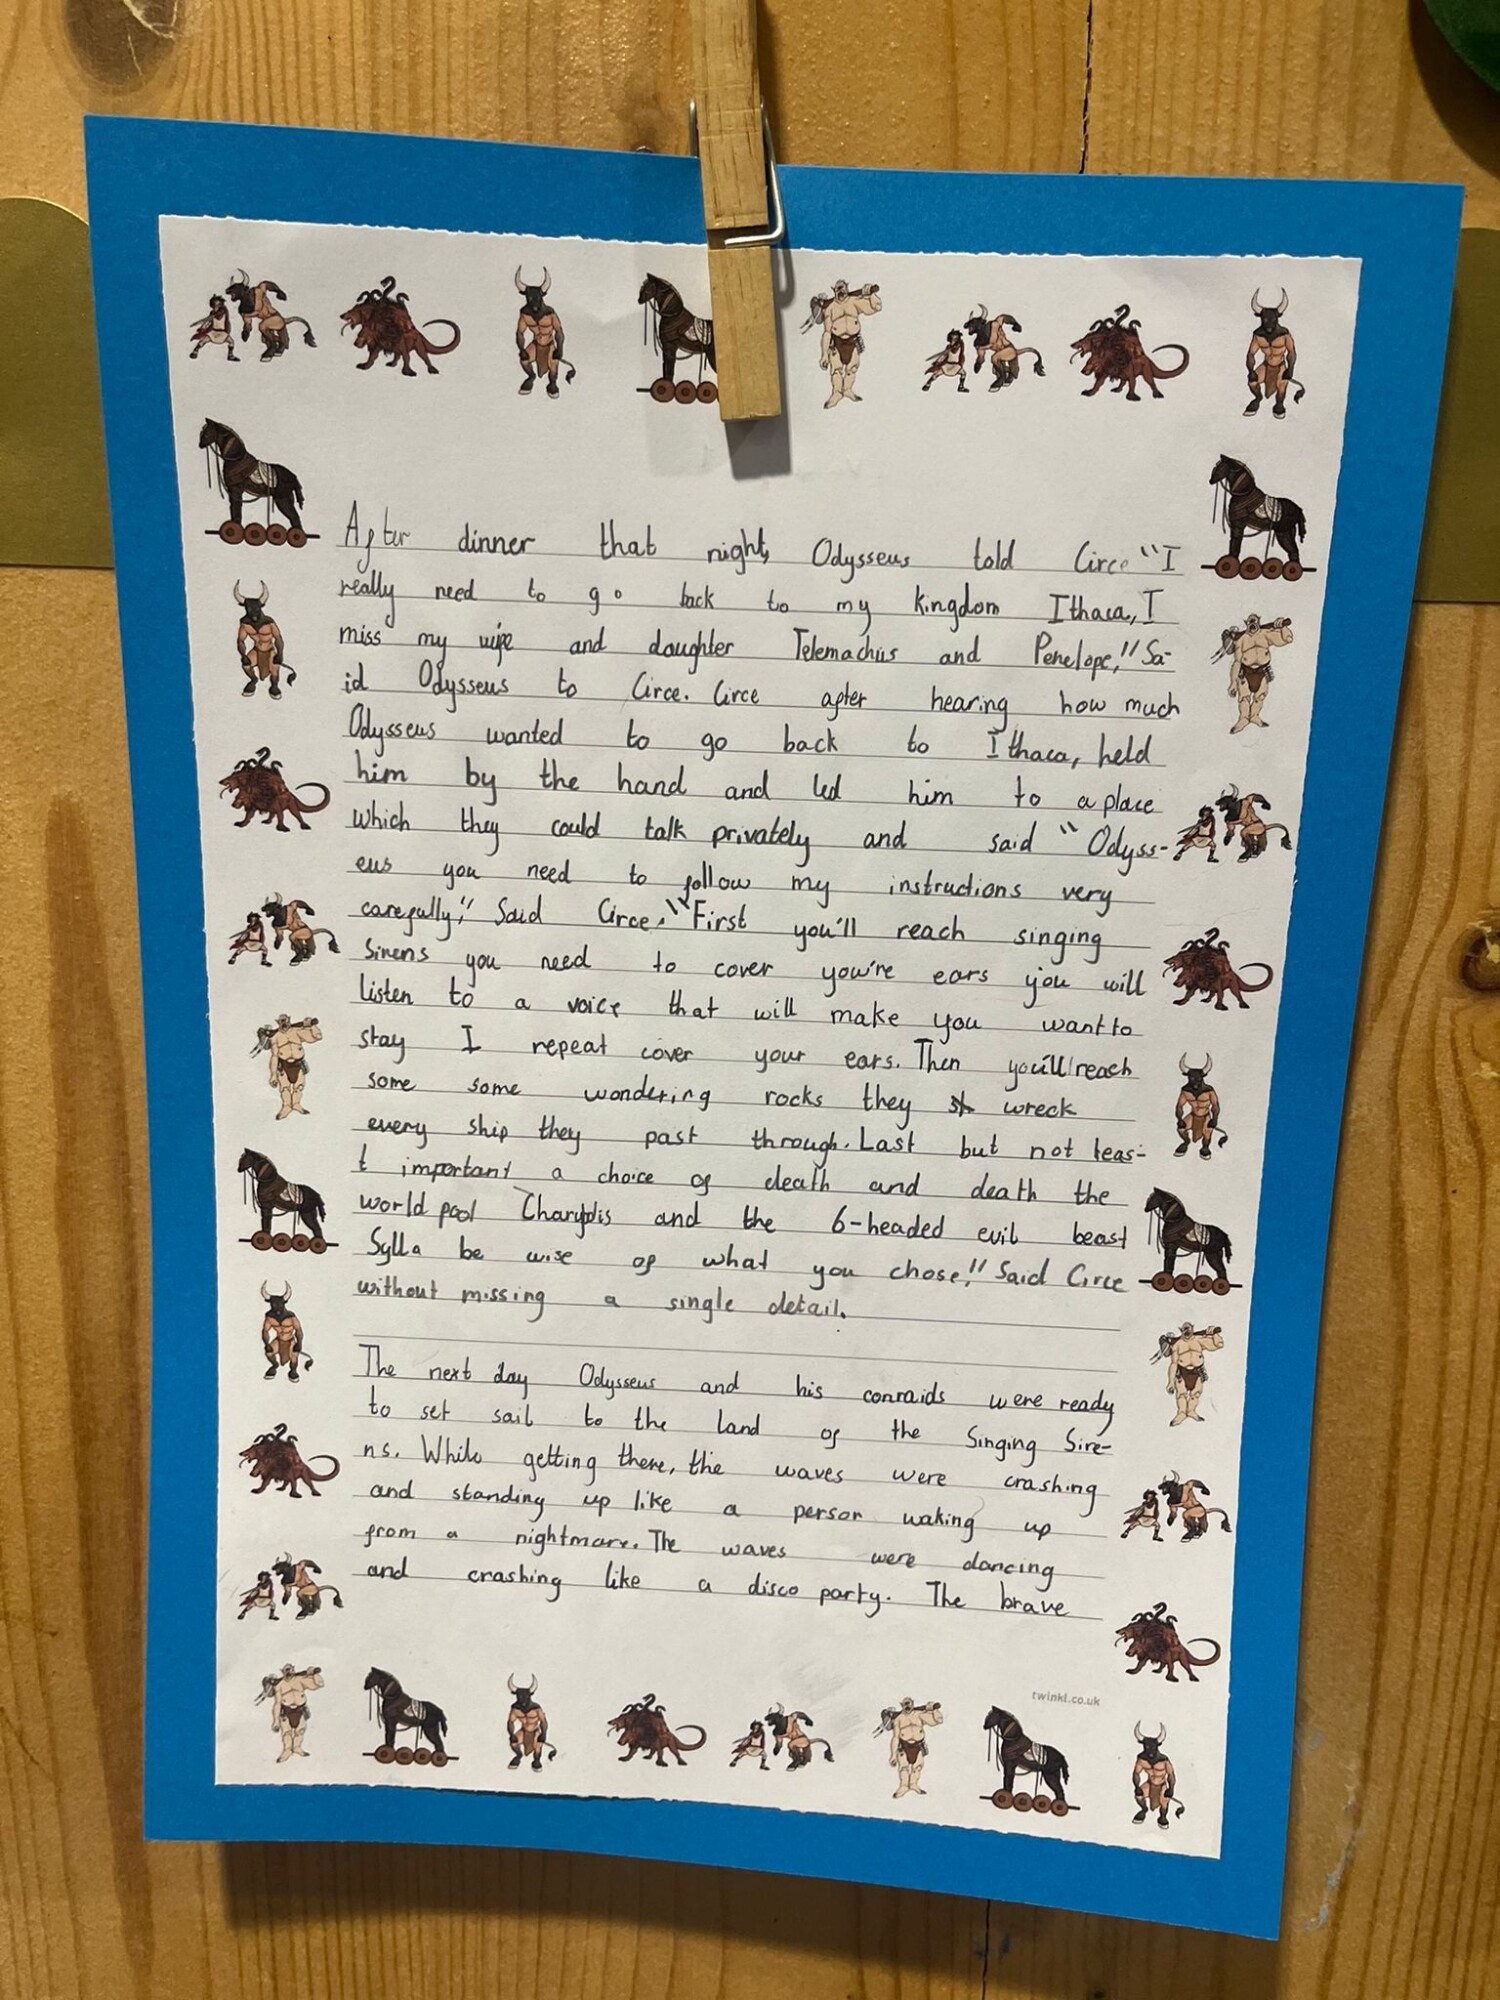 After dinner that night, Odysseus told Circe "I
really need to go back to my kingdom Ithaca, I
miss my wife and daughter Telemachus and Penelope," Sa-
id Odysseus to Circe. Circe after hearing how much
Odysseus wanted to go back to Ithaca, held
him by the hand and led him to a place
which they could talk privately and said "Odyss-
eus you need to follow my instructions very
carefully," Said Circe. "First you'll reach singing
Sirens you need to cover you're ears you will
listen to a voice that will make you want to
stay I repeat cover your ears. Then you'll reach
some some wondering rocks they wreck
every ship they past through. Last but not leas-
t important a choice of death and death the
world pool Charybdis and the 6-headed evil beast
Sylla be wise of what you chose," Said Circe
without missing a single detail.
The next day Odysseus and his comraids were ready
to set sail to the land of the Singing Sire-
ns. While getting there, the waves were crashing
and standing up like a person waking up
from a nightmare. The waves were dancing
and crashing like a disco party. The brave
twinkl.co.uk